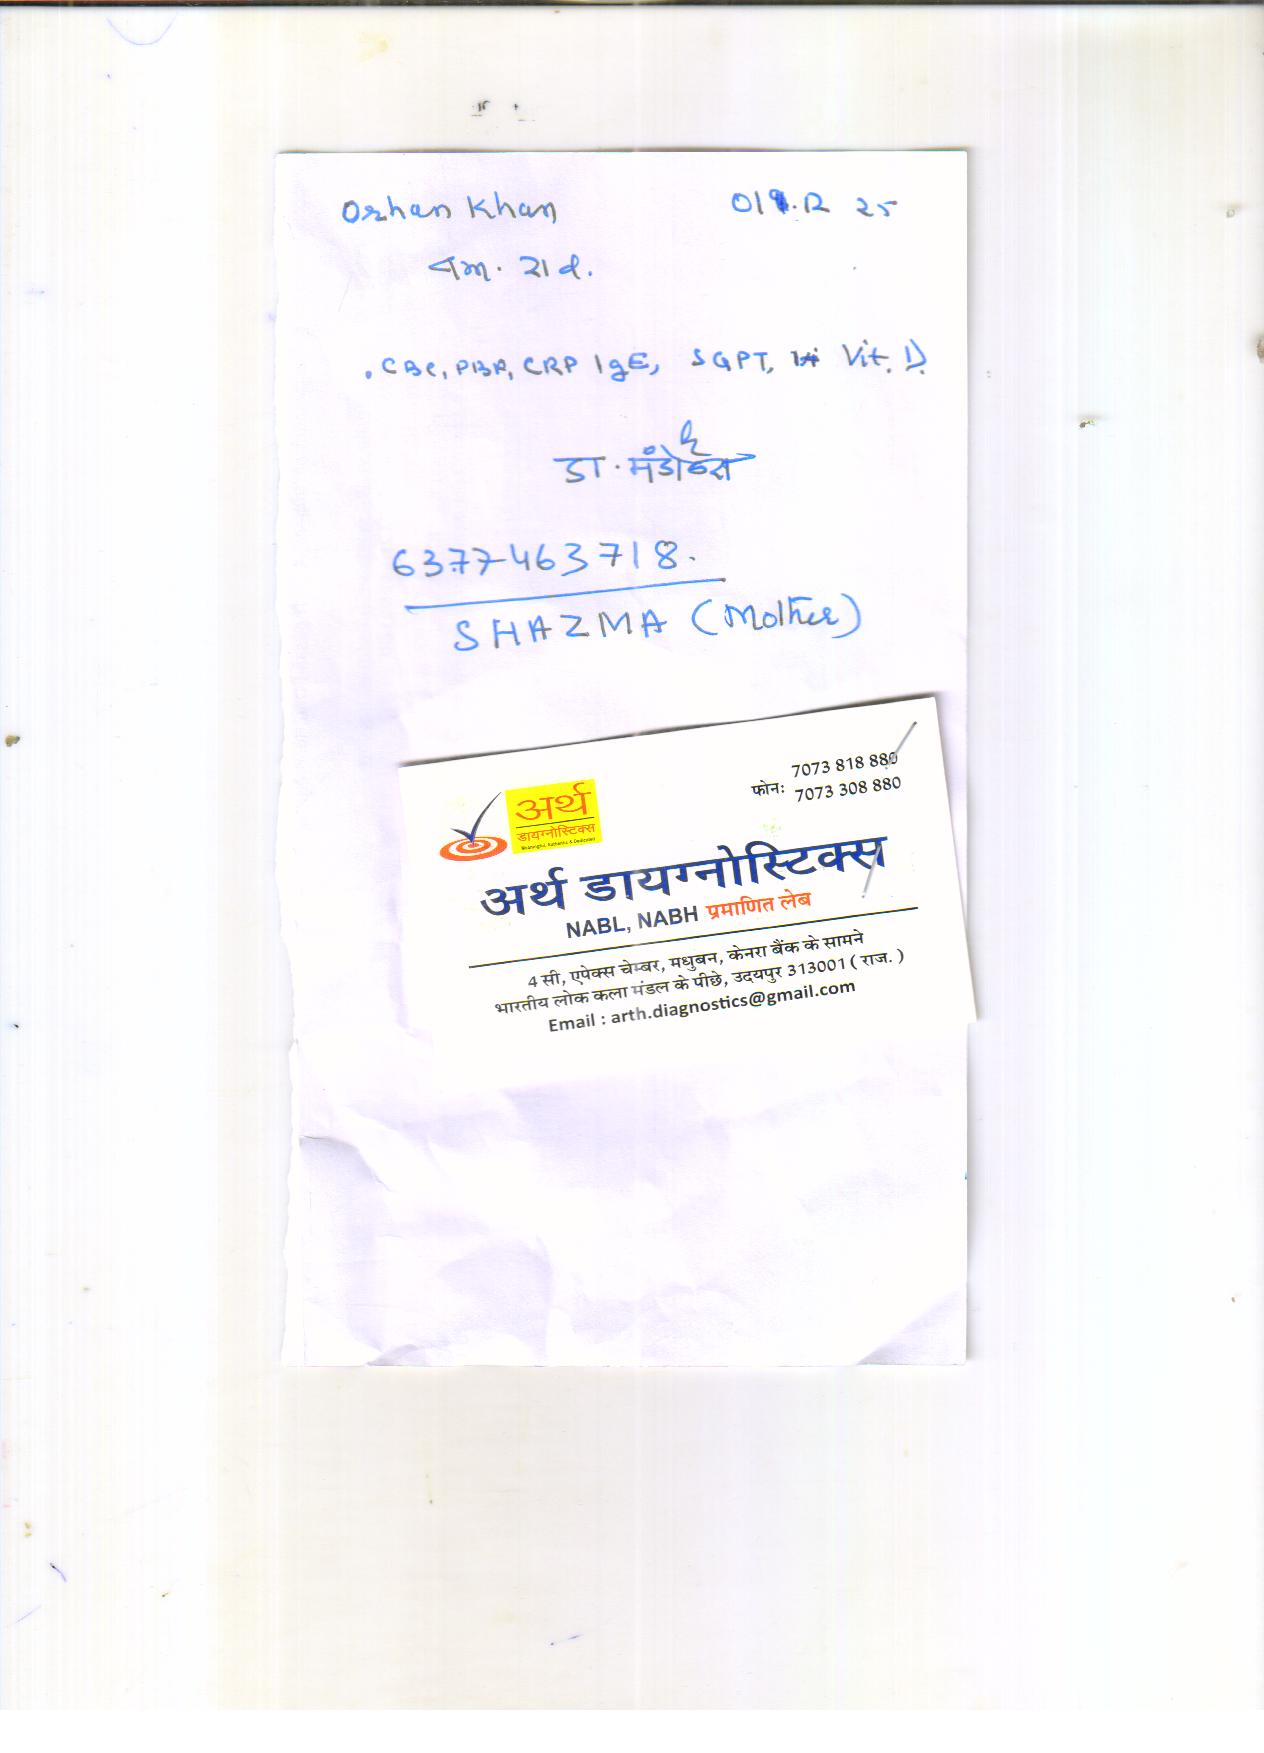 Orhan Khan 01.12 25
CBC, PBF, CRP IgE, SGPT, Vit. D.
डा.
6377463718.
SHAZMA (Mother)
7073 818 880
फोन: 7073 308 880
अर्थ
डायग्नोस्टिक्स
Meaningful, Authentic & Dedicated
अर्थ डायग्नोस्टिक्स
NABL, NABH प्रमाणित लेब
4 सी, एपेक्स चेम्बर, मधुबन, केनरा बैंक के सामने
भारतीय लोक कला मंडल के पीछे, उदयपुर 313001 ( राज. )
Email : arth.diagnostics@gmail.com